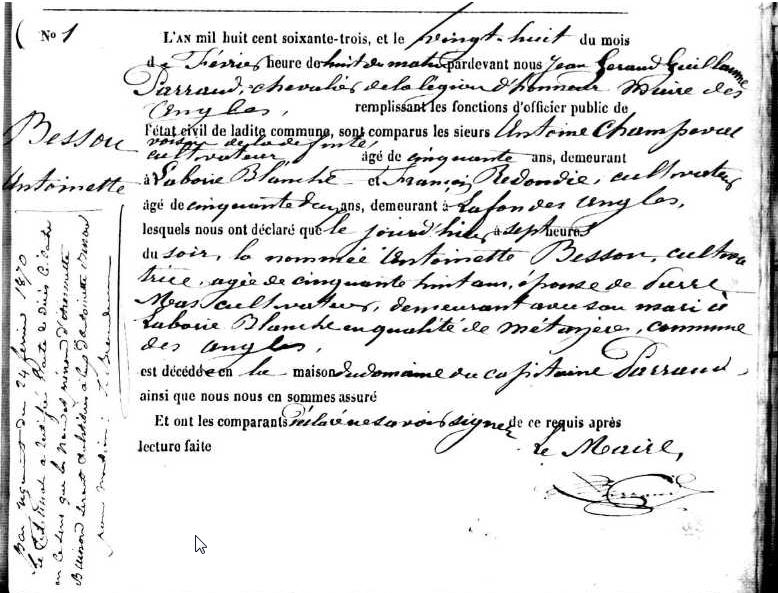 No 1
L'AN mil huit cent soixante-trois, et le vingt-huit du mois
de Février heure de huit du matin pardevant nous Jean Geraud Guillaume
Parraud, chevalier de la légion d'honneur Maire des
Angles, remplissant les fonctions d'officier public de
l'état civil de ladite commune, sont comparus les sieurs Antoine Champeval
voisin de la défunte,
cultivateur, âgé de cinquante ans, demeurant
à Laborie Blanche et François Redondie, cultivateur
âgé de cinquante deux ans, demeurant à Lafon des Angles,
lesquels nous ont déclaré que le jour d'hier à sept heures
du soir, la nommée Antoinette Besson, cultiva
trice, agée de cinquante huit ans, épouse de Pierre
Mas cultivateur, demeurant avec son mari à
Laborie Blanche en qualité de métayère, commune
des Angles,
est décédée en la maison du domaine du capitaine Parraud,
ainsi que nous nous en sommes assuré
Et ont les comparants déclaré ne savoir signer de ce requis après
lecture faite Le Maire,
Parraud
Besson
Antoinette
Par jugement du 24 février 1870
le Tribunal a rectifié l'acte de décès ci contre
en ce sens que les noms et prénom d'Antoinette
seront substitués à ceux de